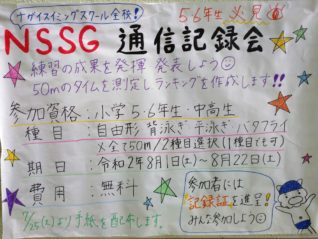 ナガイスイミングスクール全校!
5・6年生必見
NSSG 通信記録会
練習の成果を発揮 発表しよう
50mのタイムを測定しランキングを作成します!!
参加資格:小学5・6年生・中高生
種目:自由形 背泳ぎ 平泳ぎ バタフライ
※全て50m/2種目選択(1種目でも可)
期日:令和2年8月1日(土)~8月22日(土)
費用:無料
7/25(土)より手紙を配布します。
参加者には
"記録証"を進呈!
みんな参加しよう